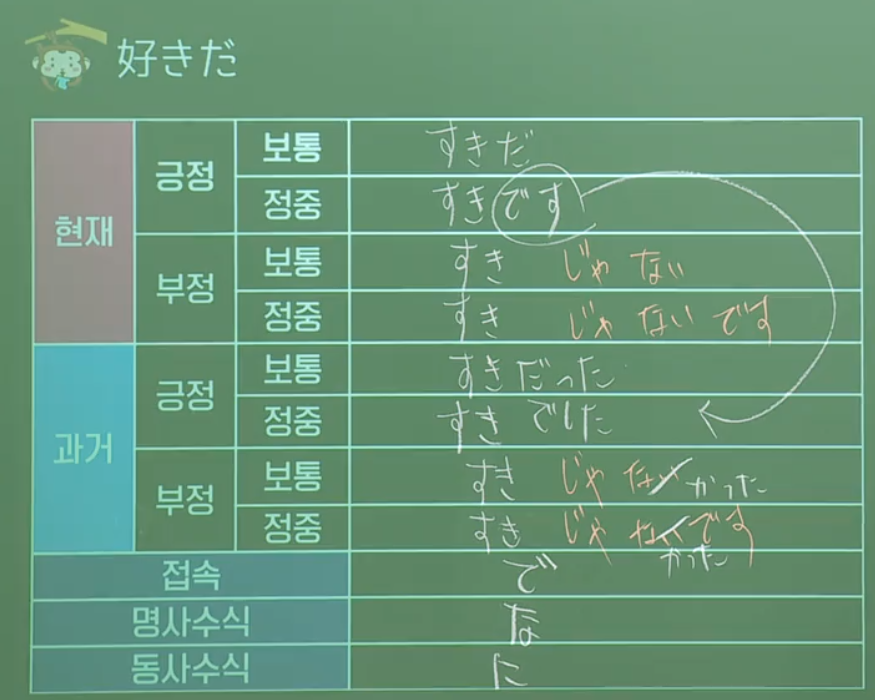 好きだ
현재 긍정 보통 すきだ
정중 すきです
부정 보통 すき じゃない
정중 すき じゃないです
과거 긍정 보통 すきだった
정중 すきでした
부정 보통 すき じゃない かった
정중 すき じゃないです
かった
접속 で
명사수식 な
동사수식 に